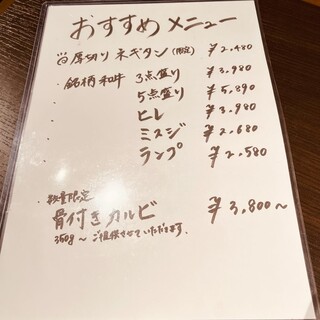 おすすめメニュー
厚切りネギタン(限定) ¥2.480
・銘柄和牛 3点盛り ¥3.980
・ 5点盛り ¥5.890
・ ヒレ ¥3.980
・ ミスジ ¥2.680
・ ランプ ¥2.580
・数量限定
骨付きカルビ ¥3,800〜
350g〜ご提供させていただきます.